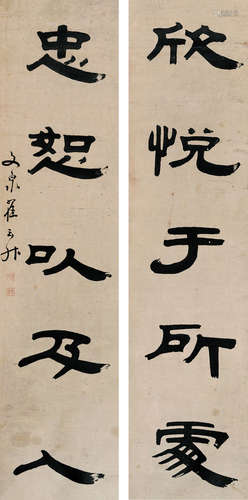 欣悦于所處
忠恕以及人
文泉崔